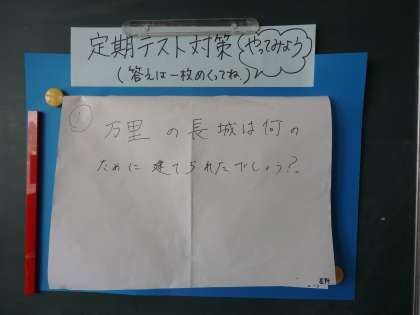 定期テスト対策
やってみよう
(答えは一枚めくってね)
①
万里の長城は何の
ために建てられたでしょう?